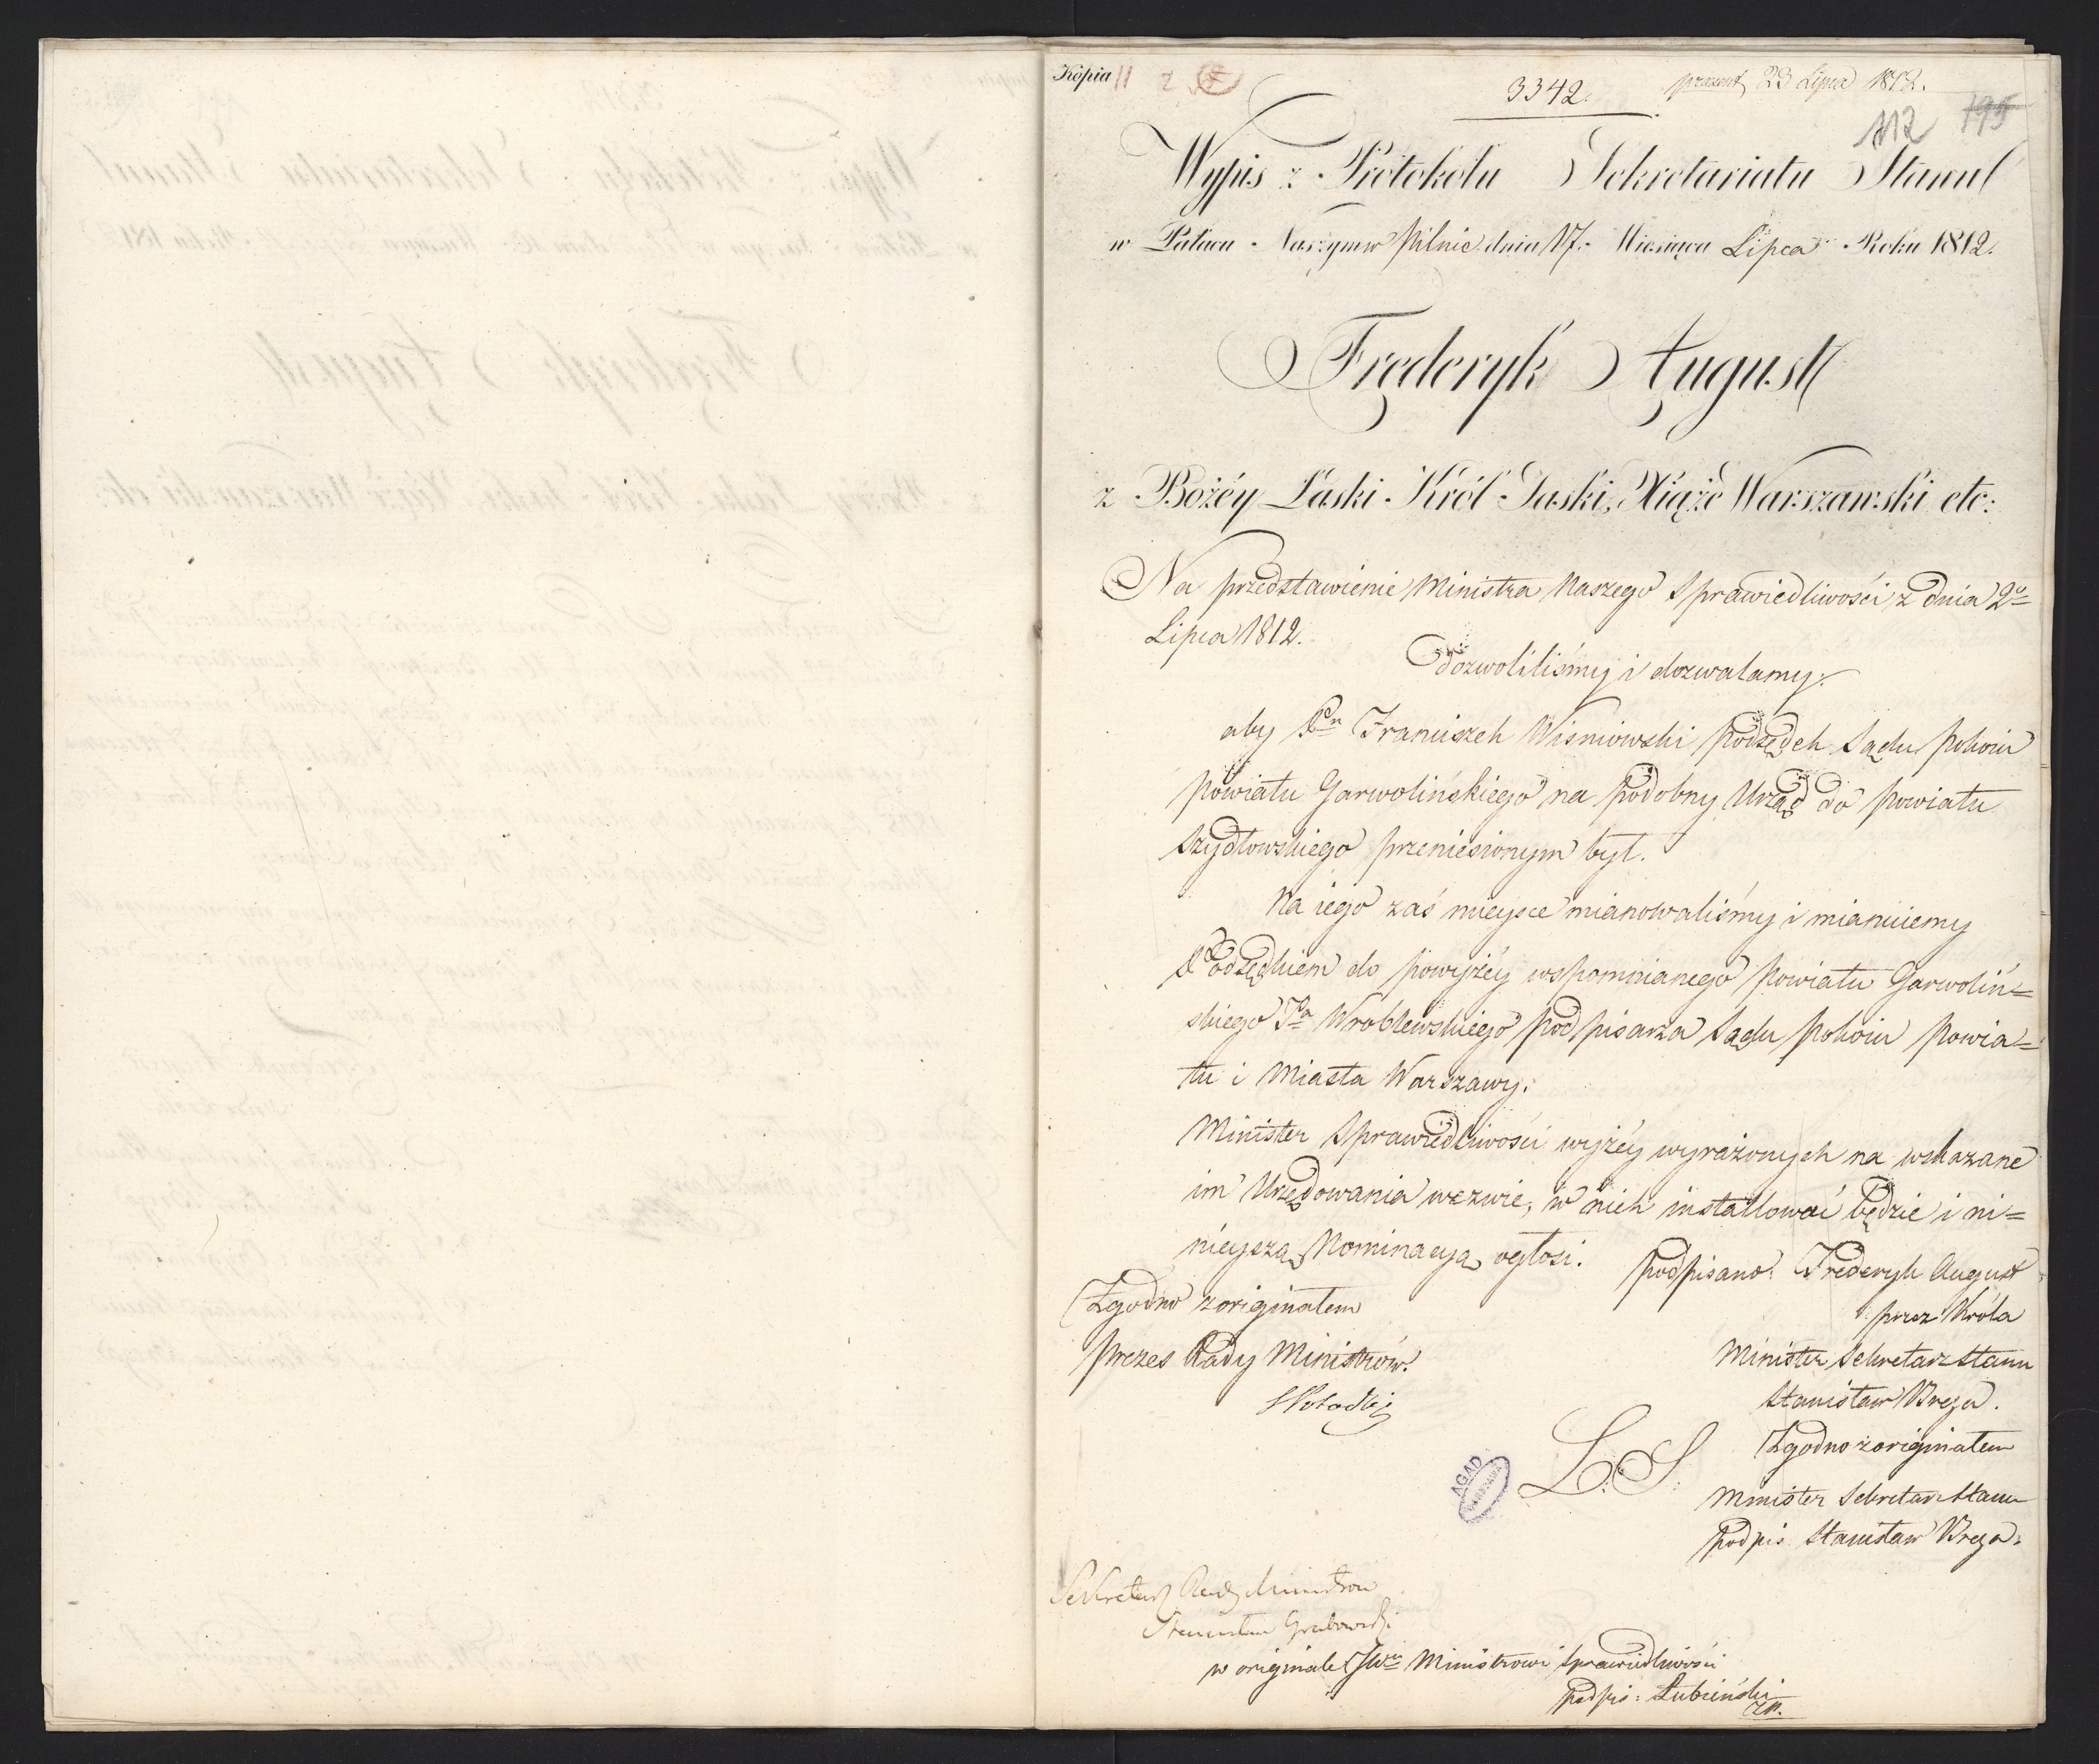 Kopia
3342. prezent 23 Lipca 1812.
112 195
Wypis z Protokołu Sekretariatu Stanu
w Pałacu Naszym w Pilnic dnia 17. Miesiąca Lipca Roku 1812.
Frederyk August
z Bożéy Łaski Król Saski, Xiążę Warszawski etc:
Na przedstawienie Ministra Naszego Sprawiedliwości z dnia 2º
Lipca 1812.
dozwoliliśmy i dozwalamy.
aby Pan Franciszek Wisniowski Podsędek Sądu Pokoiu
Powiatu Garwolińskiego na podobny Urząd do Powiatu
Szydłowskiego przeniesionym był.
Na iego zaś mieysce mianowaliśmy i mianuiemy
Podsędkiem do powyżéy wspomnianego Powiatu Garwoliń=
skiego Pa Wroblewskiego Podpisarza Sądu Pokoiu Powia=
tu i Miasta Warszawy.
Minister Sprawiedliwości wyżéy wyrażonych na wskazane
im Urzędowania wezwie, w nich installować będzie i ni=
nieyszą Nominacyą ogłosi. podpisano: Frederyk August
Zgodno z originałem
przez Króla
Prezes Rady Ministrów.
Minister Sekretarz Stanu
Stanisław Breza.
L. S.
Zgodno z originałem
AGAD
WARSZAWA
Minister Sekretarz Stanu
podpis Stanisław Breza.
Sekretarz Rady Ministrow
Stanisław Grabowski
w originale JWu Ministrowi Sprawiedliwości
podpis: Łubieński